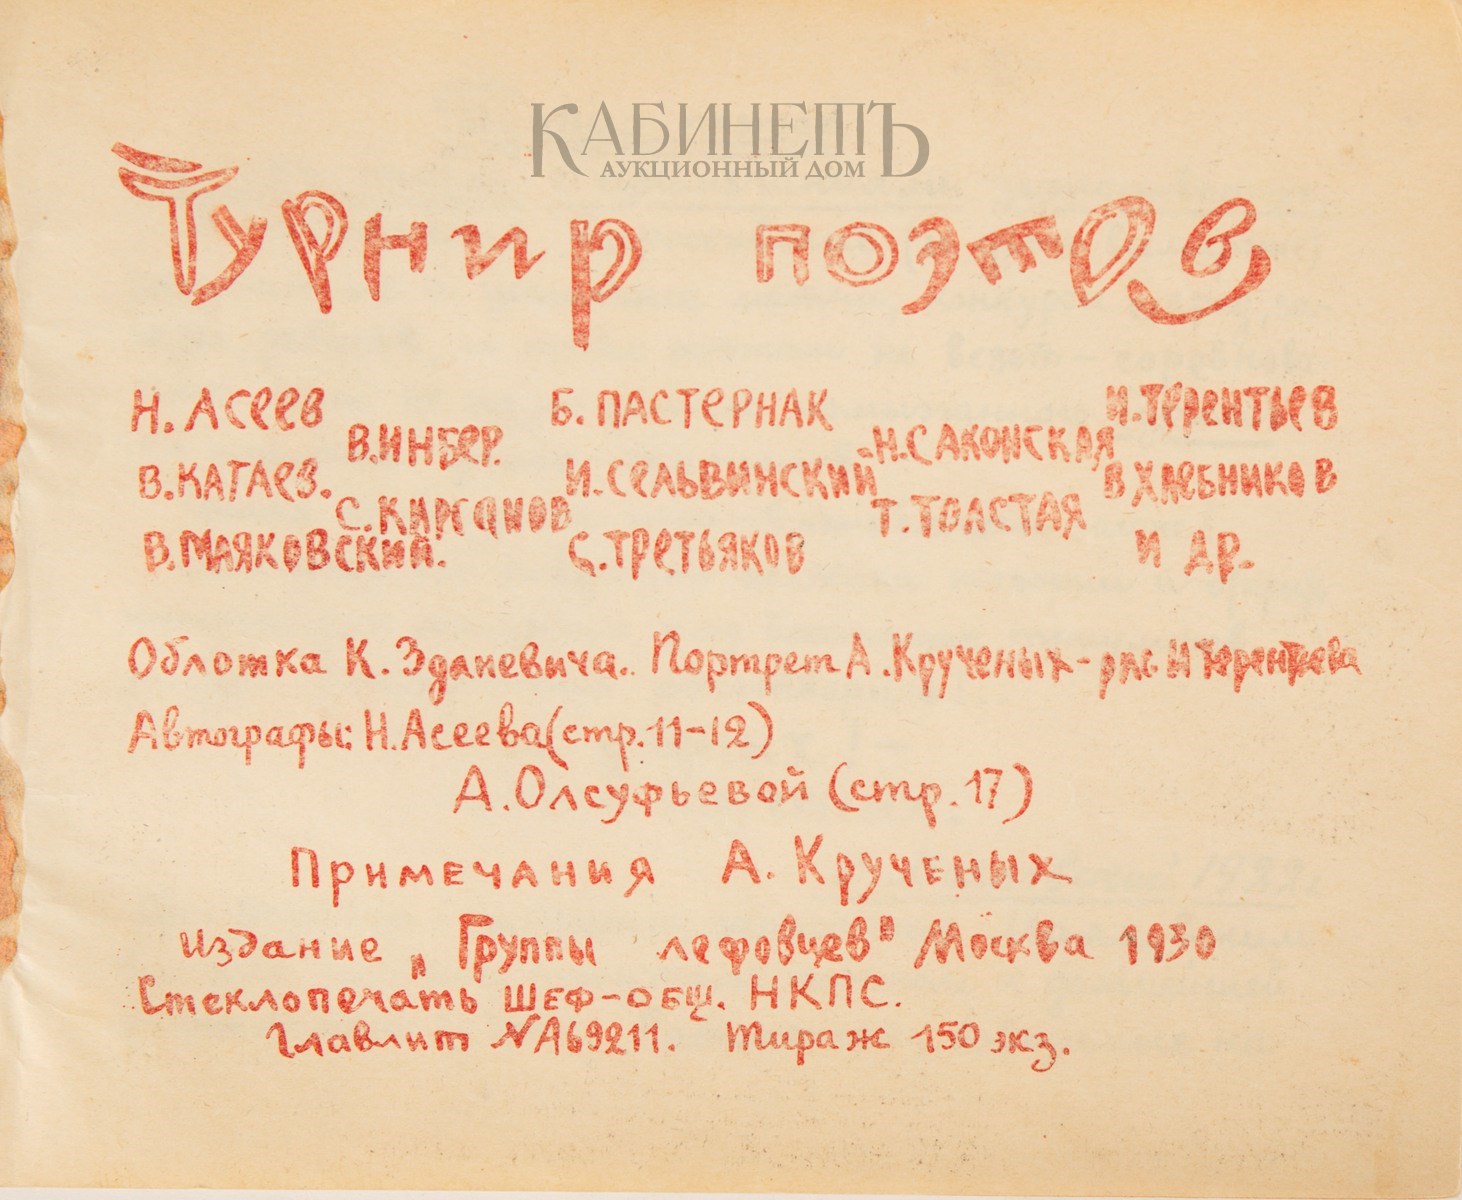 КАБИНЕТЪ
АУКЦИОННЫЙ ДОМ
Турнир поэтов
Н. Асеев
В. ИНБЕР.
Б. ПАСТЕРНАК
Н. САКОНСКАЯ
И. ТЕРЕНТЬЕВ
В. КАТАЕВ.
С. КИРСАНОВ
И. СЕЛЬВИНСКИЙ
Т. ТОЛСТАЯ
В ХЛЕБНИКОВ
В. МАЯКОВСКИЙ.
С. ТРЕТЬЯКОВ
И ДР.
Обложка К. Зданевича. Портрет А. Крученых - рис И Терентьева
Автографы: Н. Асеева (стр. 11-12)
А. Олсуфьевой (стр. 17)
Примечания А. Крученых
издание „Группы лефовцев" Москва 1930
Стеклопечать ШЕФ-ОБЩ. НКПС.
Главлит №А69211. Тираж 150 экз.